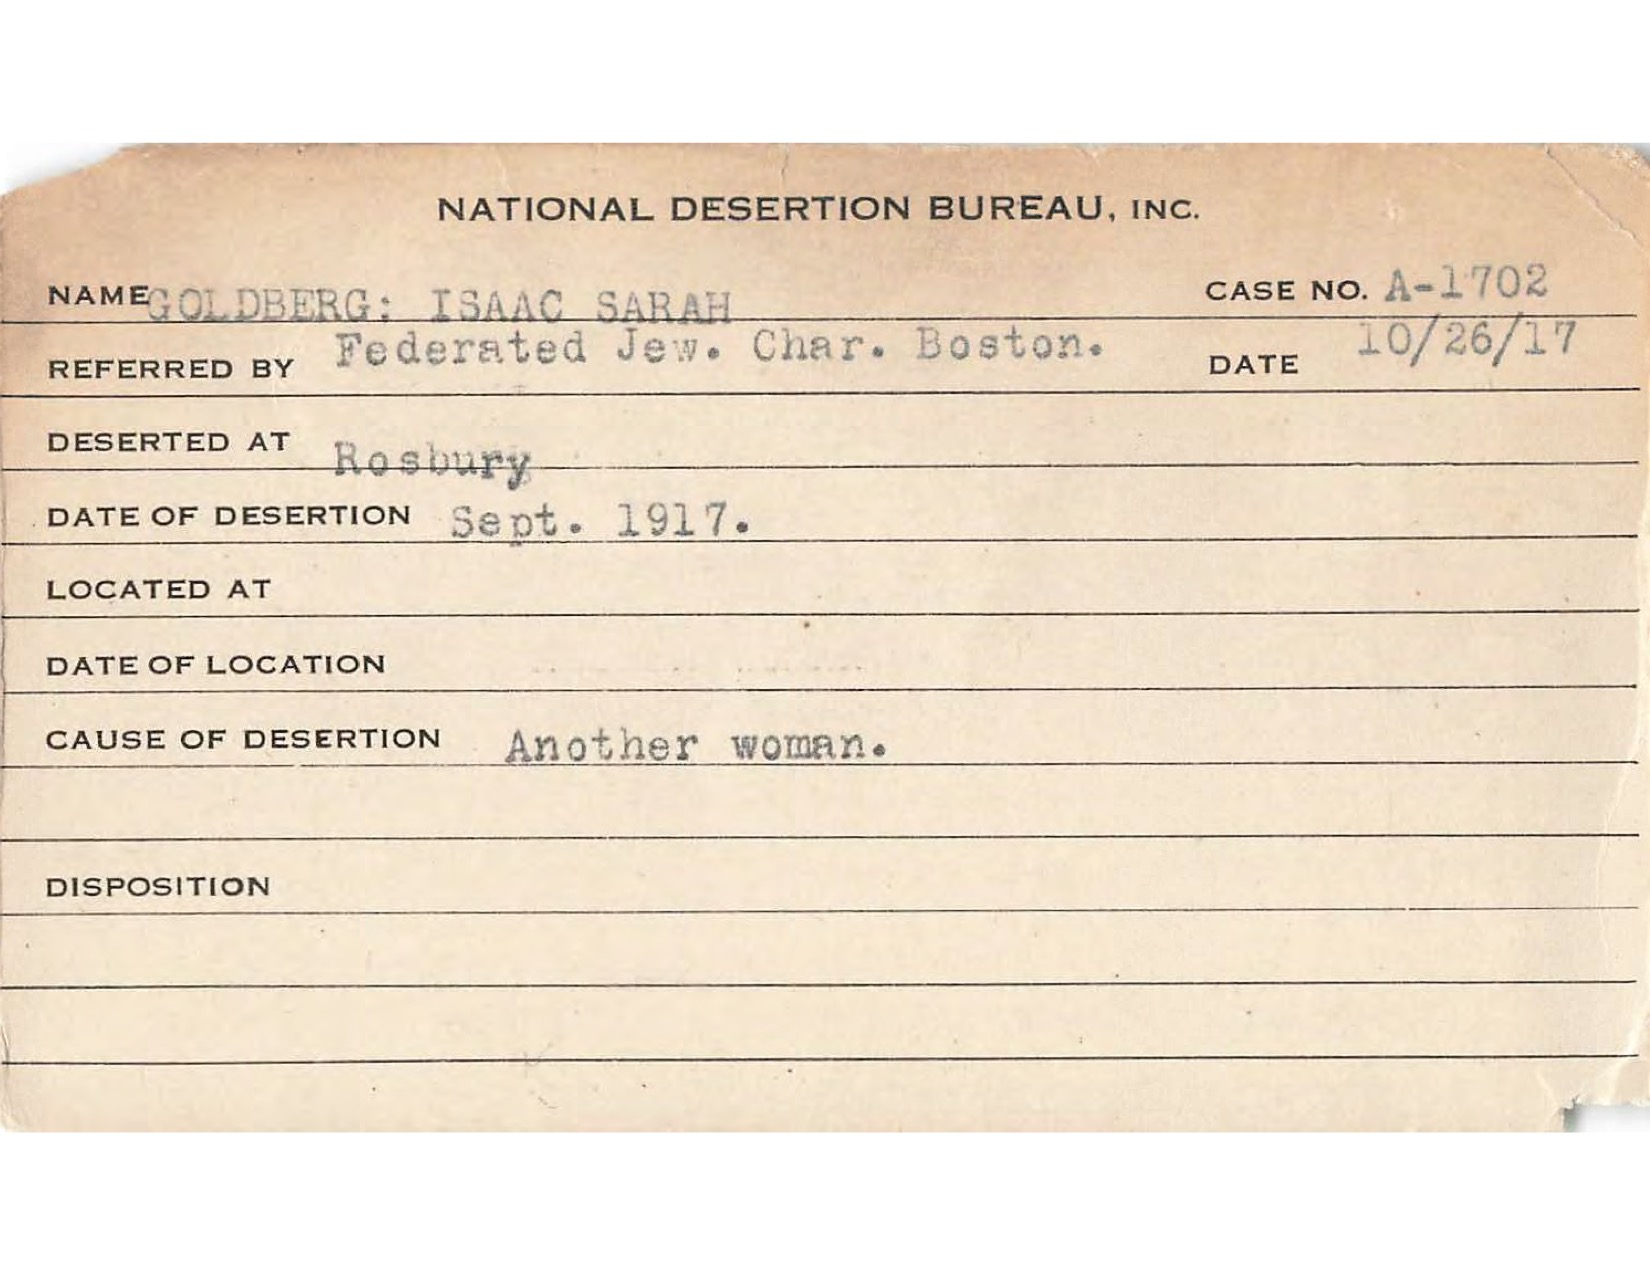 NATIONAL DESERTION BUREAU, INC.
NAME GOLDBERG: ISAAC SARAH CASE NO. A-1702
REFERRED BY Federated Jew. Char. Boston. DATE 10/26/17
DESERTED AT Rosbury
DATE OF DESERTION Sept. 1917.
LOCATED AT
DATE OF LOCATION
CAUSE OF DESERTION Another woman.
DISPOSITION